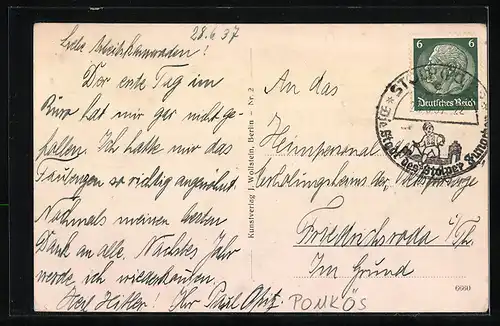 28.6.37
Liebe Arbeitskameraden!
Der erste Tag im
Büro hat mir gar nicht ge-
fallen. Ich hatte mir das
so richtig angewöhnt.
Nochmals meinen besten
Dank an alle. Nächstes Jahr
werde ich wiederkommen.
Heil Hitler! Ihr Paul
Kunstverlag J. Wollstein, Berlin - Nr. 2
6
6
Deutsches Reich
STOLP
Die Stadt des Stolper Jungchen
An das
Heimpersonal
Erholungsheims der
Friedrichroda i/Th.
Im Grund
6660
POMKÖS